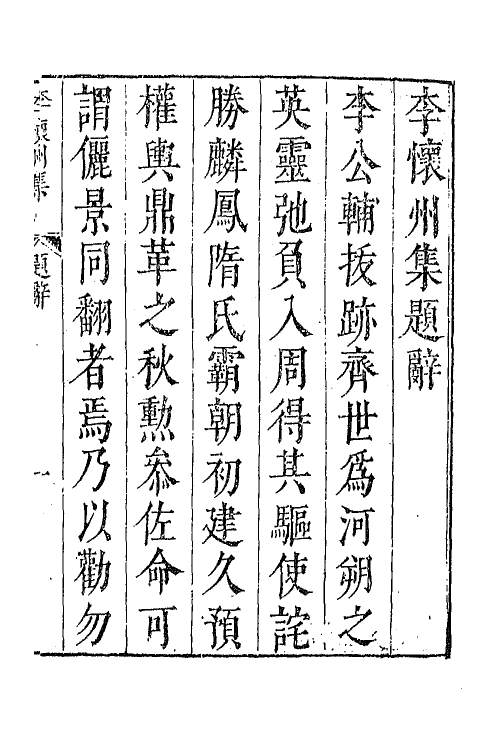 李懷州集題辭
李公輔拔跡齊世爲河朔之
英靈弛負入周得其驅使詫
勝麟鳳隋氏霸朝初建久預
權輿鼎革之秋勲叅佐命可
謂儷景同翻者焉乃以勸勿
李懷州集 題辭 一